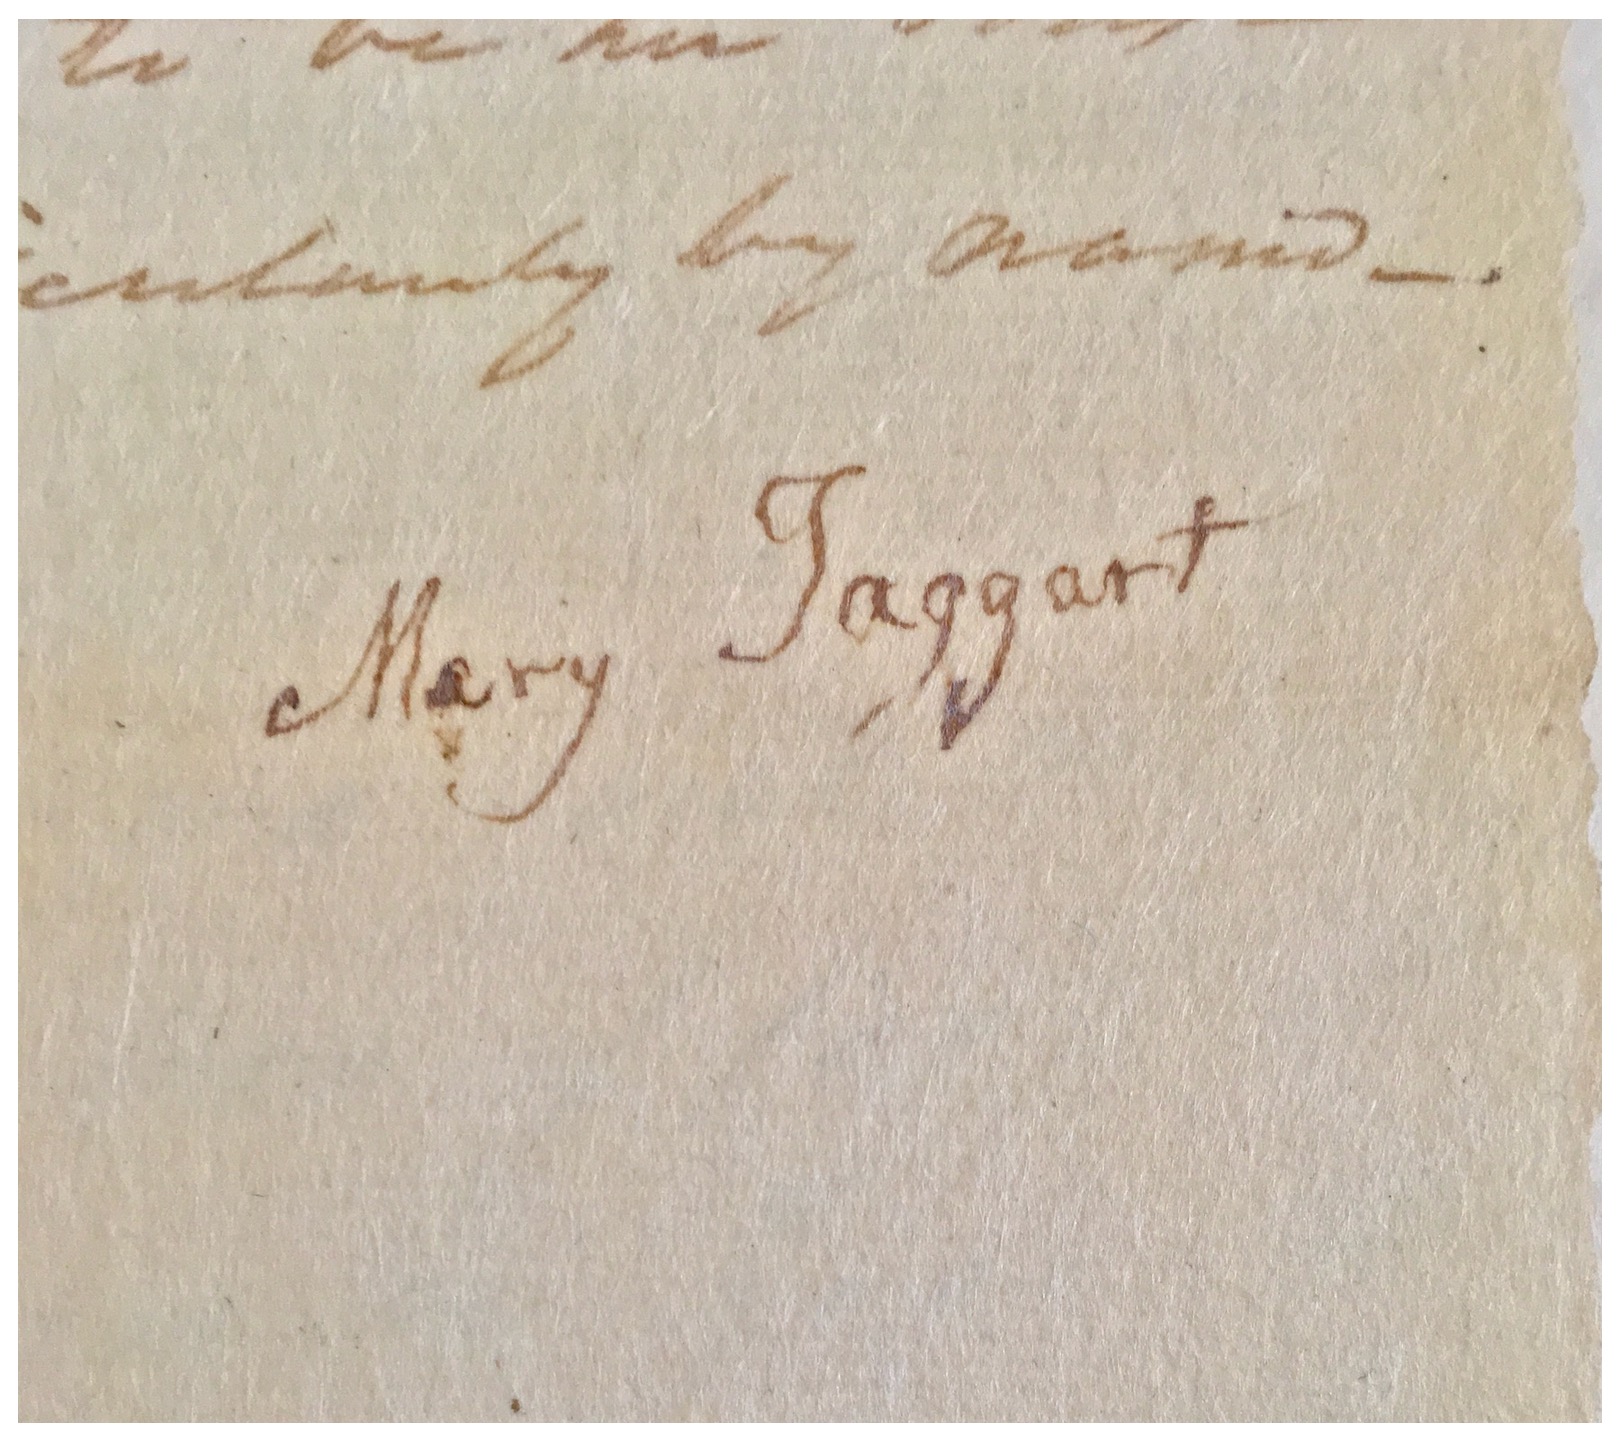 to be in
icularly by name - .
Mary Taggart